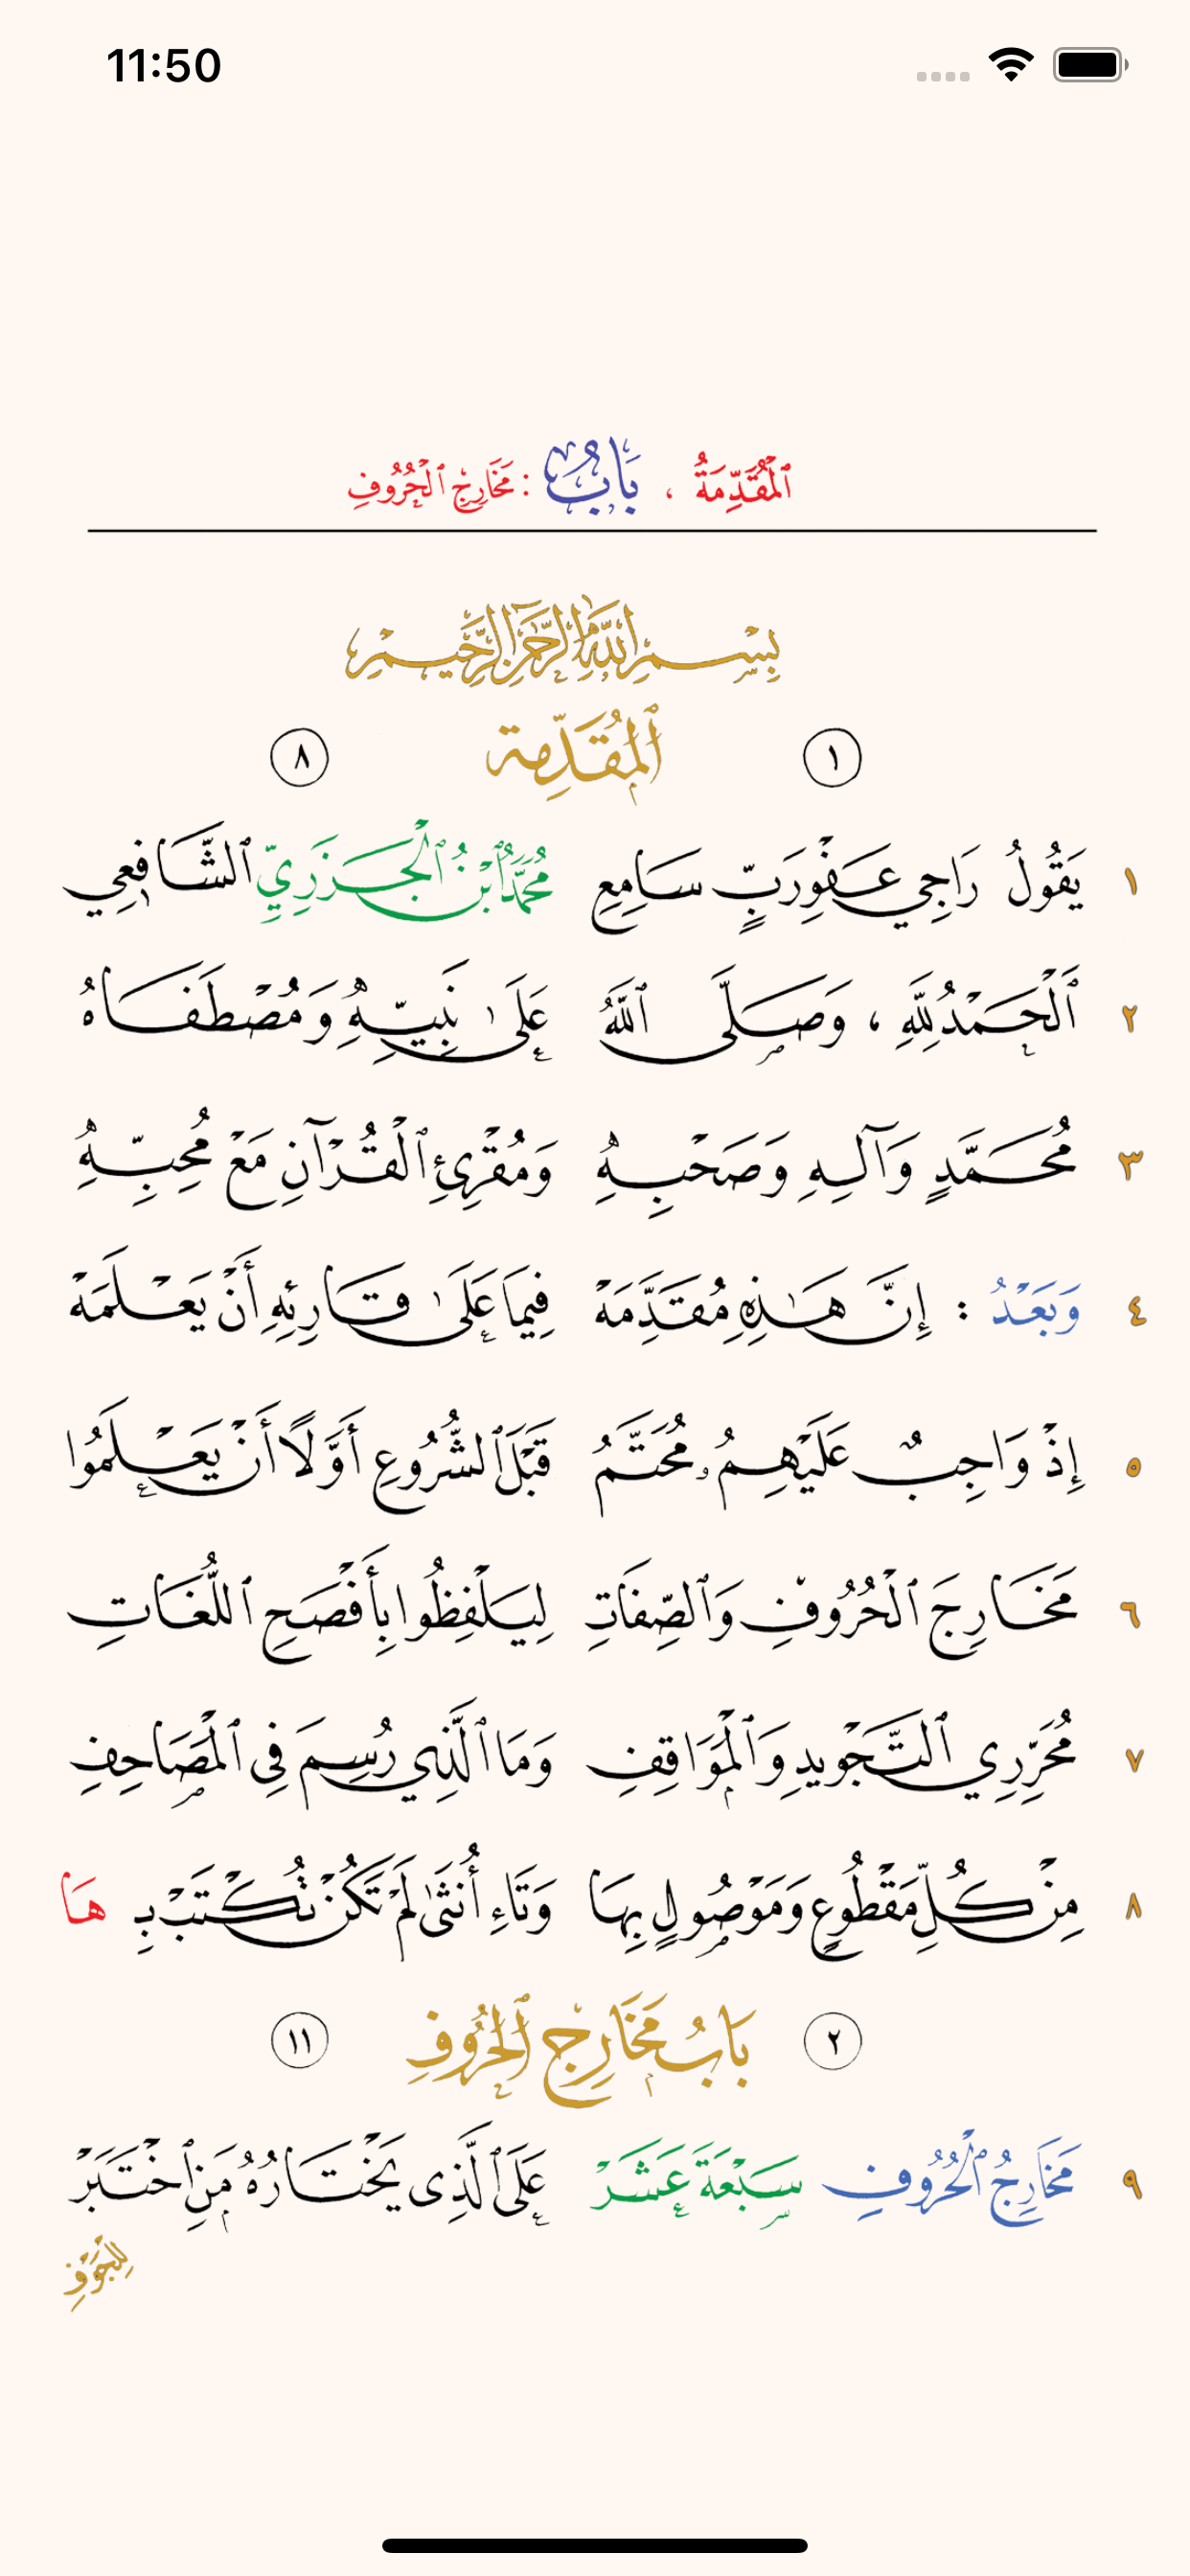 11:50
ٱلْمُقَدِّمَةُ ، بَابُ : مَخَارِجِ ٱلْحُرُوفِ
بِسْمِ ٱللَّهِ ٱلرَّحْمَٰنِ ٱلرَّحِيمِ
١ ٱلْمُقَدِّمة ٨
١ يَقُولُ رَاجِي عَفْوِ رَبٍّ سَامِعِ مُحَمَّدُ ٱبْنُ ٱلْجَزَرِيِّ ٱلشَّافِعِي
٢ ٱَلْحَمْدُ لِلَّهِ ، وَصَلَّى ٱللَّهُ عَلَىٰ نَبِيِّهِ وَمُصْطَفَاهُ
٣ مُحَمَّدٍ وَآلِهِ وَصَحْبِهِ وَمُقْرِئِ ٱلْقُرْآنِ مَعْ مُحِبِّهِ
٤ وَبَعْدُ : إِنَّ هَٰذِهِ مُقَدِّمَهْ فِيمَا عَلَىٰ قَارِئِهِ أَنْ يَعْلَمَهْ
٥ إِذْ وَاجِبٌ عَلَيْهِمُ مُحَتَّمُ قَبْلَ ٱلشُّرُوعِ أَوَّلًا أَنْ يَعْلَمُوا
٦ مَخَارِجَ ٱلْحُرُوفِ وَٱلصِّفَاتِ لِيَلْفِظُوا بِأَفْصَحِ ٱللُّغَاتِ
٧ مُحَرِّرِي ٱلتَّجْوِيدِ وَٱلْمَوَاقِفِ وَمَا ٱلَّذِي رُسِمَ فِي ٱلْمَصَاحِفِ
٨ مِنْ كُلِّ مَقْطُوعٍ وَمَوْصُولٍ بِهَا وَتَاءِ أُنْثَىٰ لَمْ تَكُنْ تُكْتَبْ بِـ هَا
٢ بَابُ مَخَارِجِ ٱلْحُرُوفِ ١١
٩ مَخَارِجُ ٱلْحُرُوفِ سَبْعَةَ عَشَرْ عَلَى ٱلَّذِى يَخْتَارُهُ مَنِ ٱخْتَبَرْ
لِلْجَوْفِ